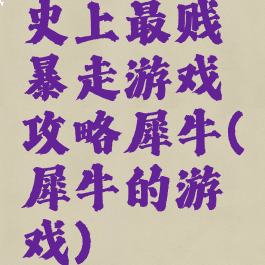 史上最贱
暴走游戏
攻略犀牛(
犀牛的游
戏)